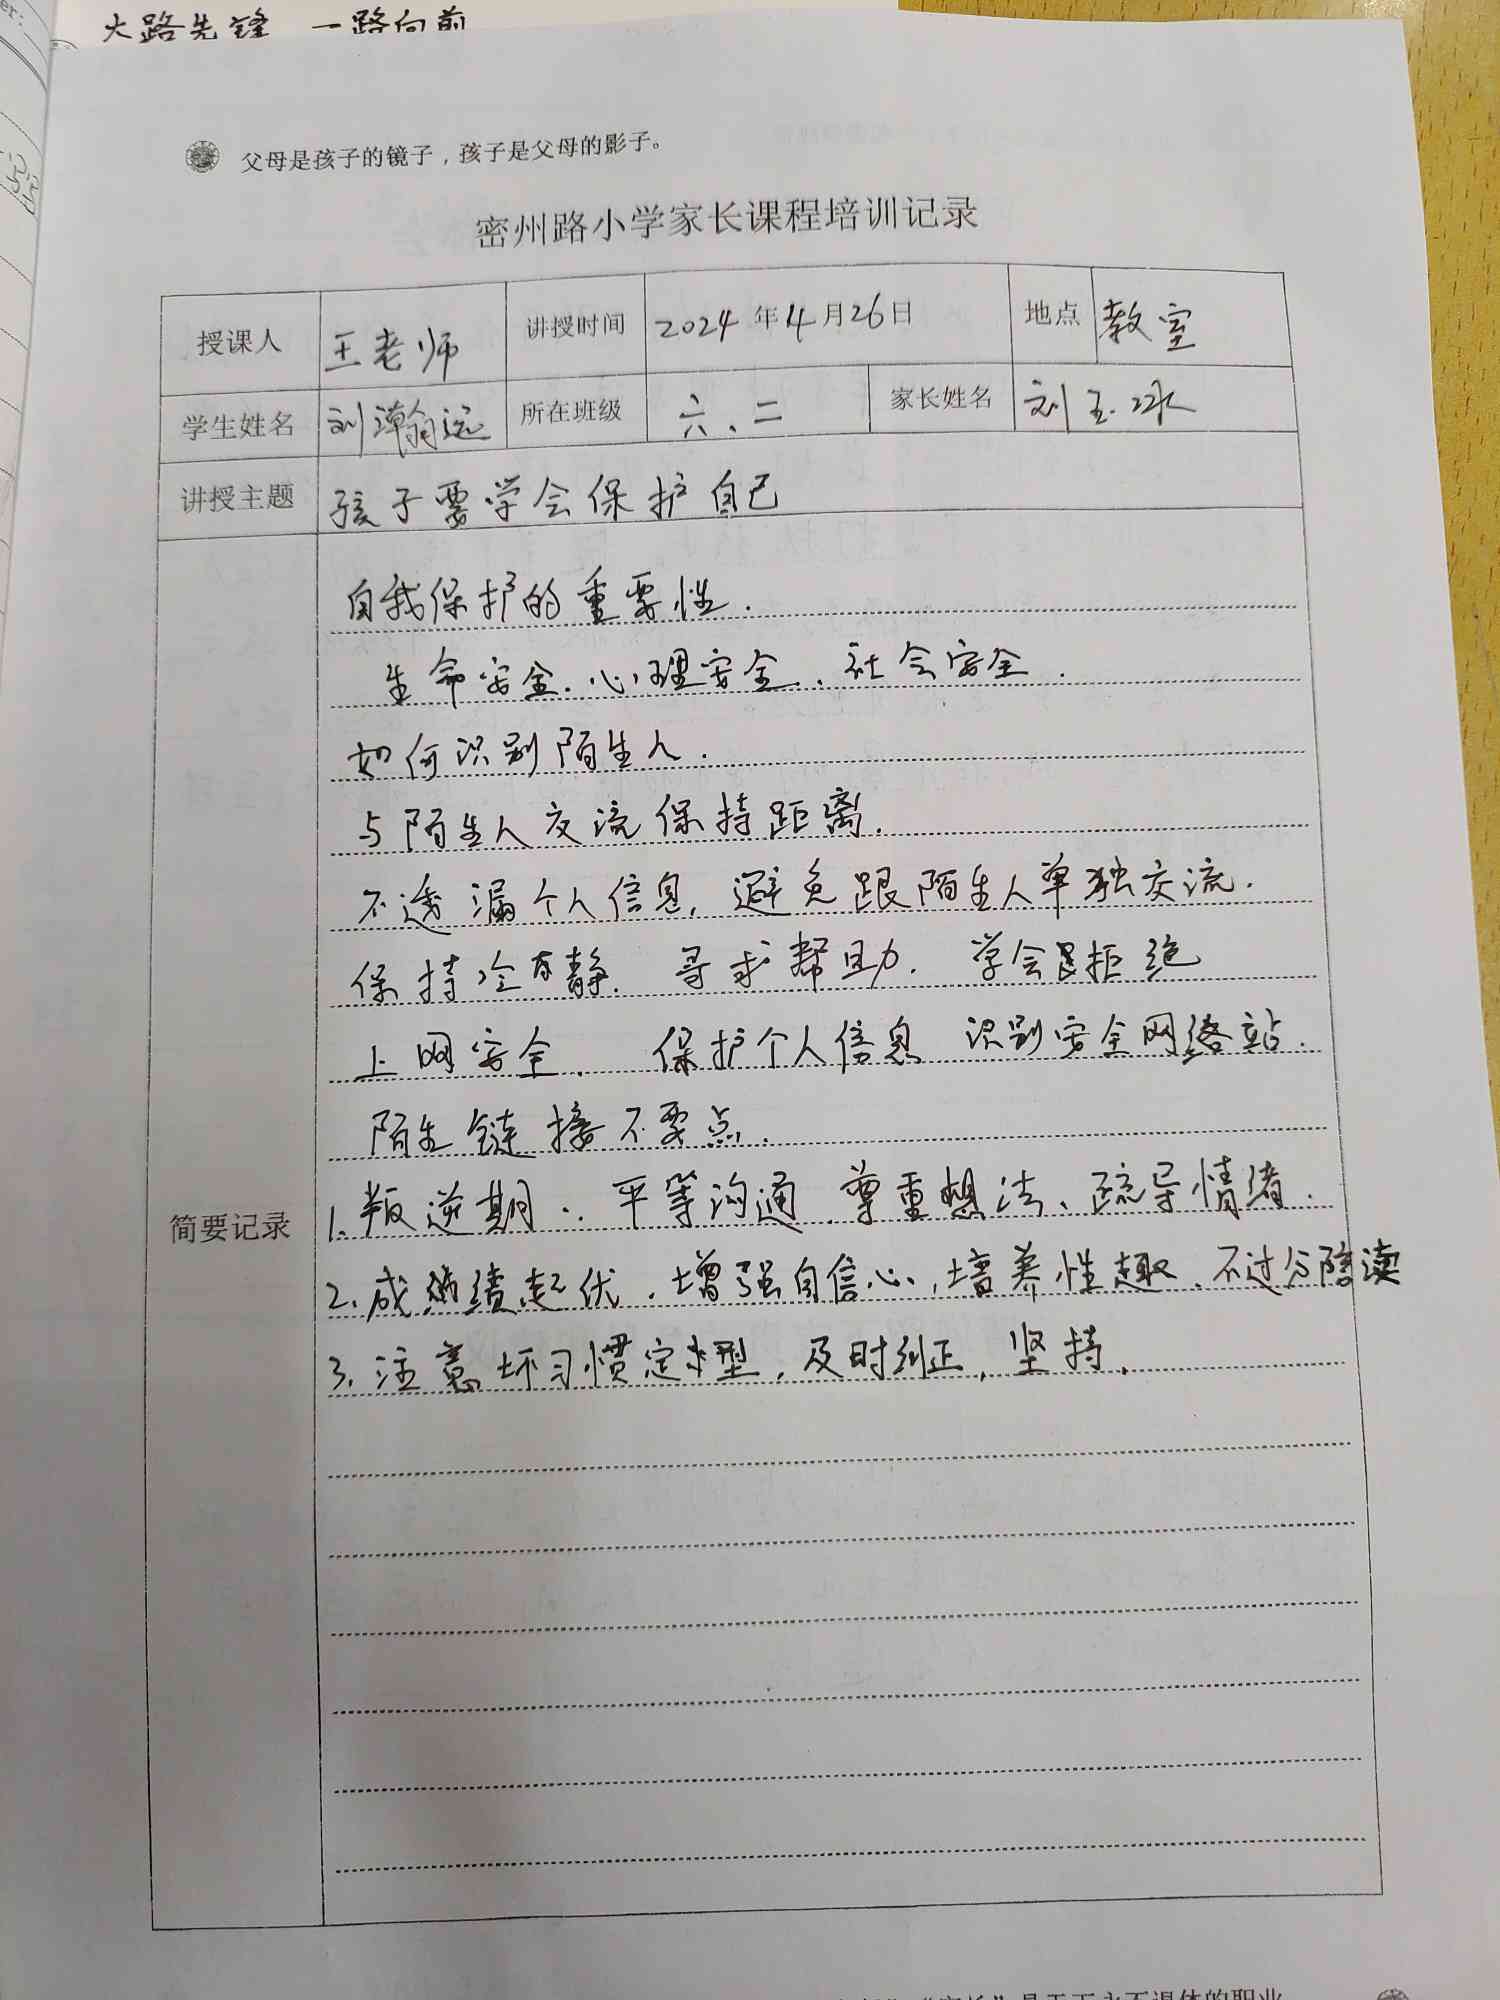 火路先锋 一路向前
父母是孩子的镜子，孩子是父母的影子。
密州路小学家长课程培训记录
授课人 王老师 讲授时间 2024年4月26日 地点 教室
学生姓名 刘瀚远 所在班级 六.二 家长姓名 刘玉冰
讲授主题 孩子要学会保护自己
简要记录
自我保护的重要性.
生命安全.心理安全.社会安全.
如何识别陌生人.
与陌生人交流保持距离.
不透漏个人信息,避免跟陌生人单独交流.
保持冷静.寻求帮助.学会拒绝
上网安全. 保护个人信息 识别安全网络站.
陌生链接不要点.
1.叛逆期:.平等沟通.尊重想法、疏导情绪.
2.成绩起伏.增强自信心,培养性趣.不过分陪读
3.注意坏习惯定型,及时纠正,坚持.